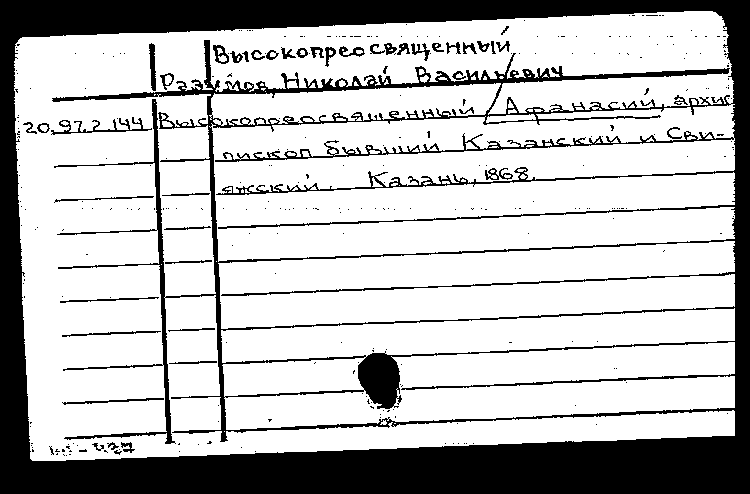 Высокопреосвященный
Разумов, Николай Васильевич
20.97.2.144 Высокопреосвященный / Афанасий, архие
пископ бывший Казанский и Сви-
яжский. Казань, 1868.